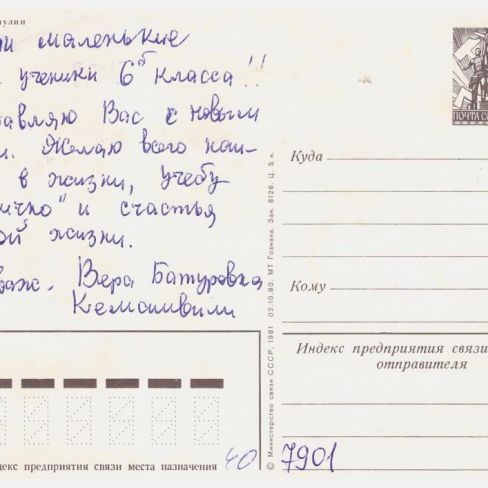 улин
и маленькие
ученики 6б класса!!
тавляю Вас с новым
и. Желаю всего наи-
в жизни, учебу
ично" и счастья
ой жизни.
важ. Вера Батуровна
ПОЧТА СС
Куда
Кому
Индекс предприятия связи
отправителя
© Министерство связи СССР, 1981 02.10.80. МТ Гознака. Зак. 8126. Ц. 5 к.
декс предприятия связи места назначения
40
7901